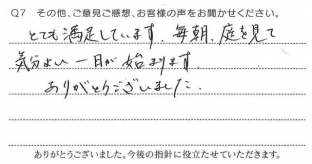 Q7 その他、ご意見ご感想、お客様の声をお聞かせください。
とても満足しています。毎朝、庭を見て
気分よい一日が始まります。
ありがとうございました。
ありがとうございました。今後の指針に役立たせていただきます。